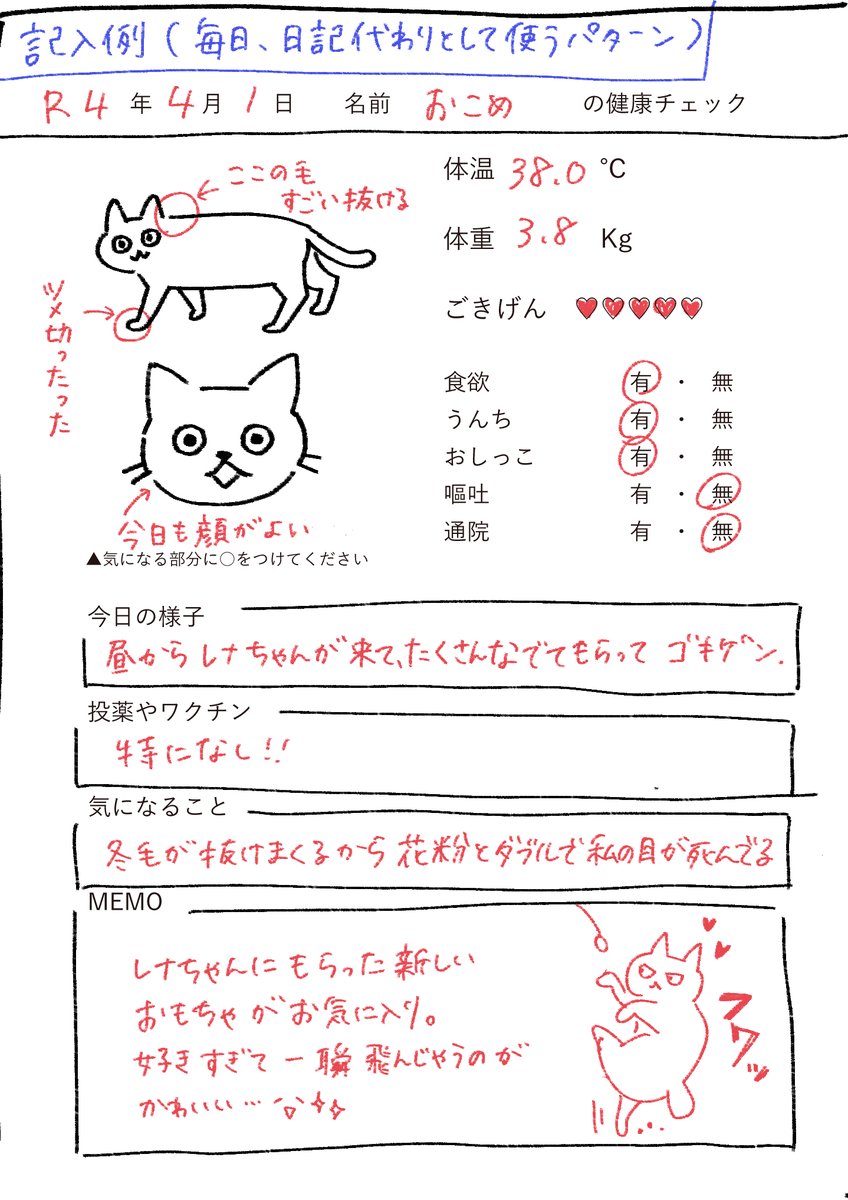 記入例（毎日、日記代わりとして使うパターン）
R4年4月1日 名前 おこめ の健康チェック
ここの毛
すごい抜ける
ツメ切ったった
今日も顔がよい
▲気になる部分に〇をつけてください
体温 38.0 ℃
体重 3.8 Kg
ごきげん ♥♥♥♥♥
食欲 有・無
うんち 有・無
おしっこ 有・無
嘔吐 有・無
通院 有・無
今日の様子
昼からレナちゃんが来て、たくさんなでてもらって ゴキゲン.
投薬やワクチン
特になし!!
気になること
冬毛が抜けまくるから花粉とダブルで私の目が死んでる
MEMO
レナちゃんにもらった新しい
おもちゃがお気に入り。
好きすぎて一瞬飛んじゃうのが
かわいい…
フワッ